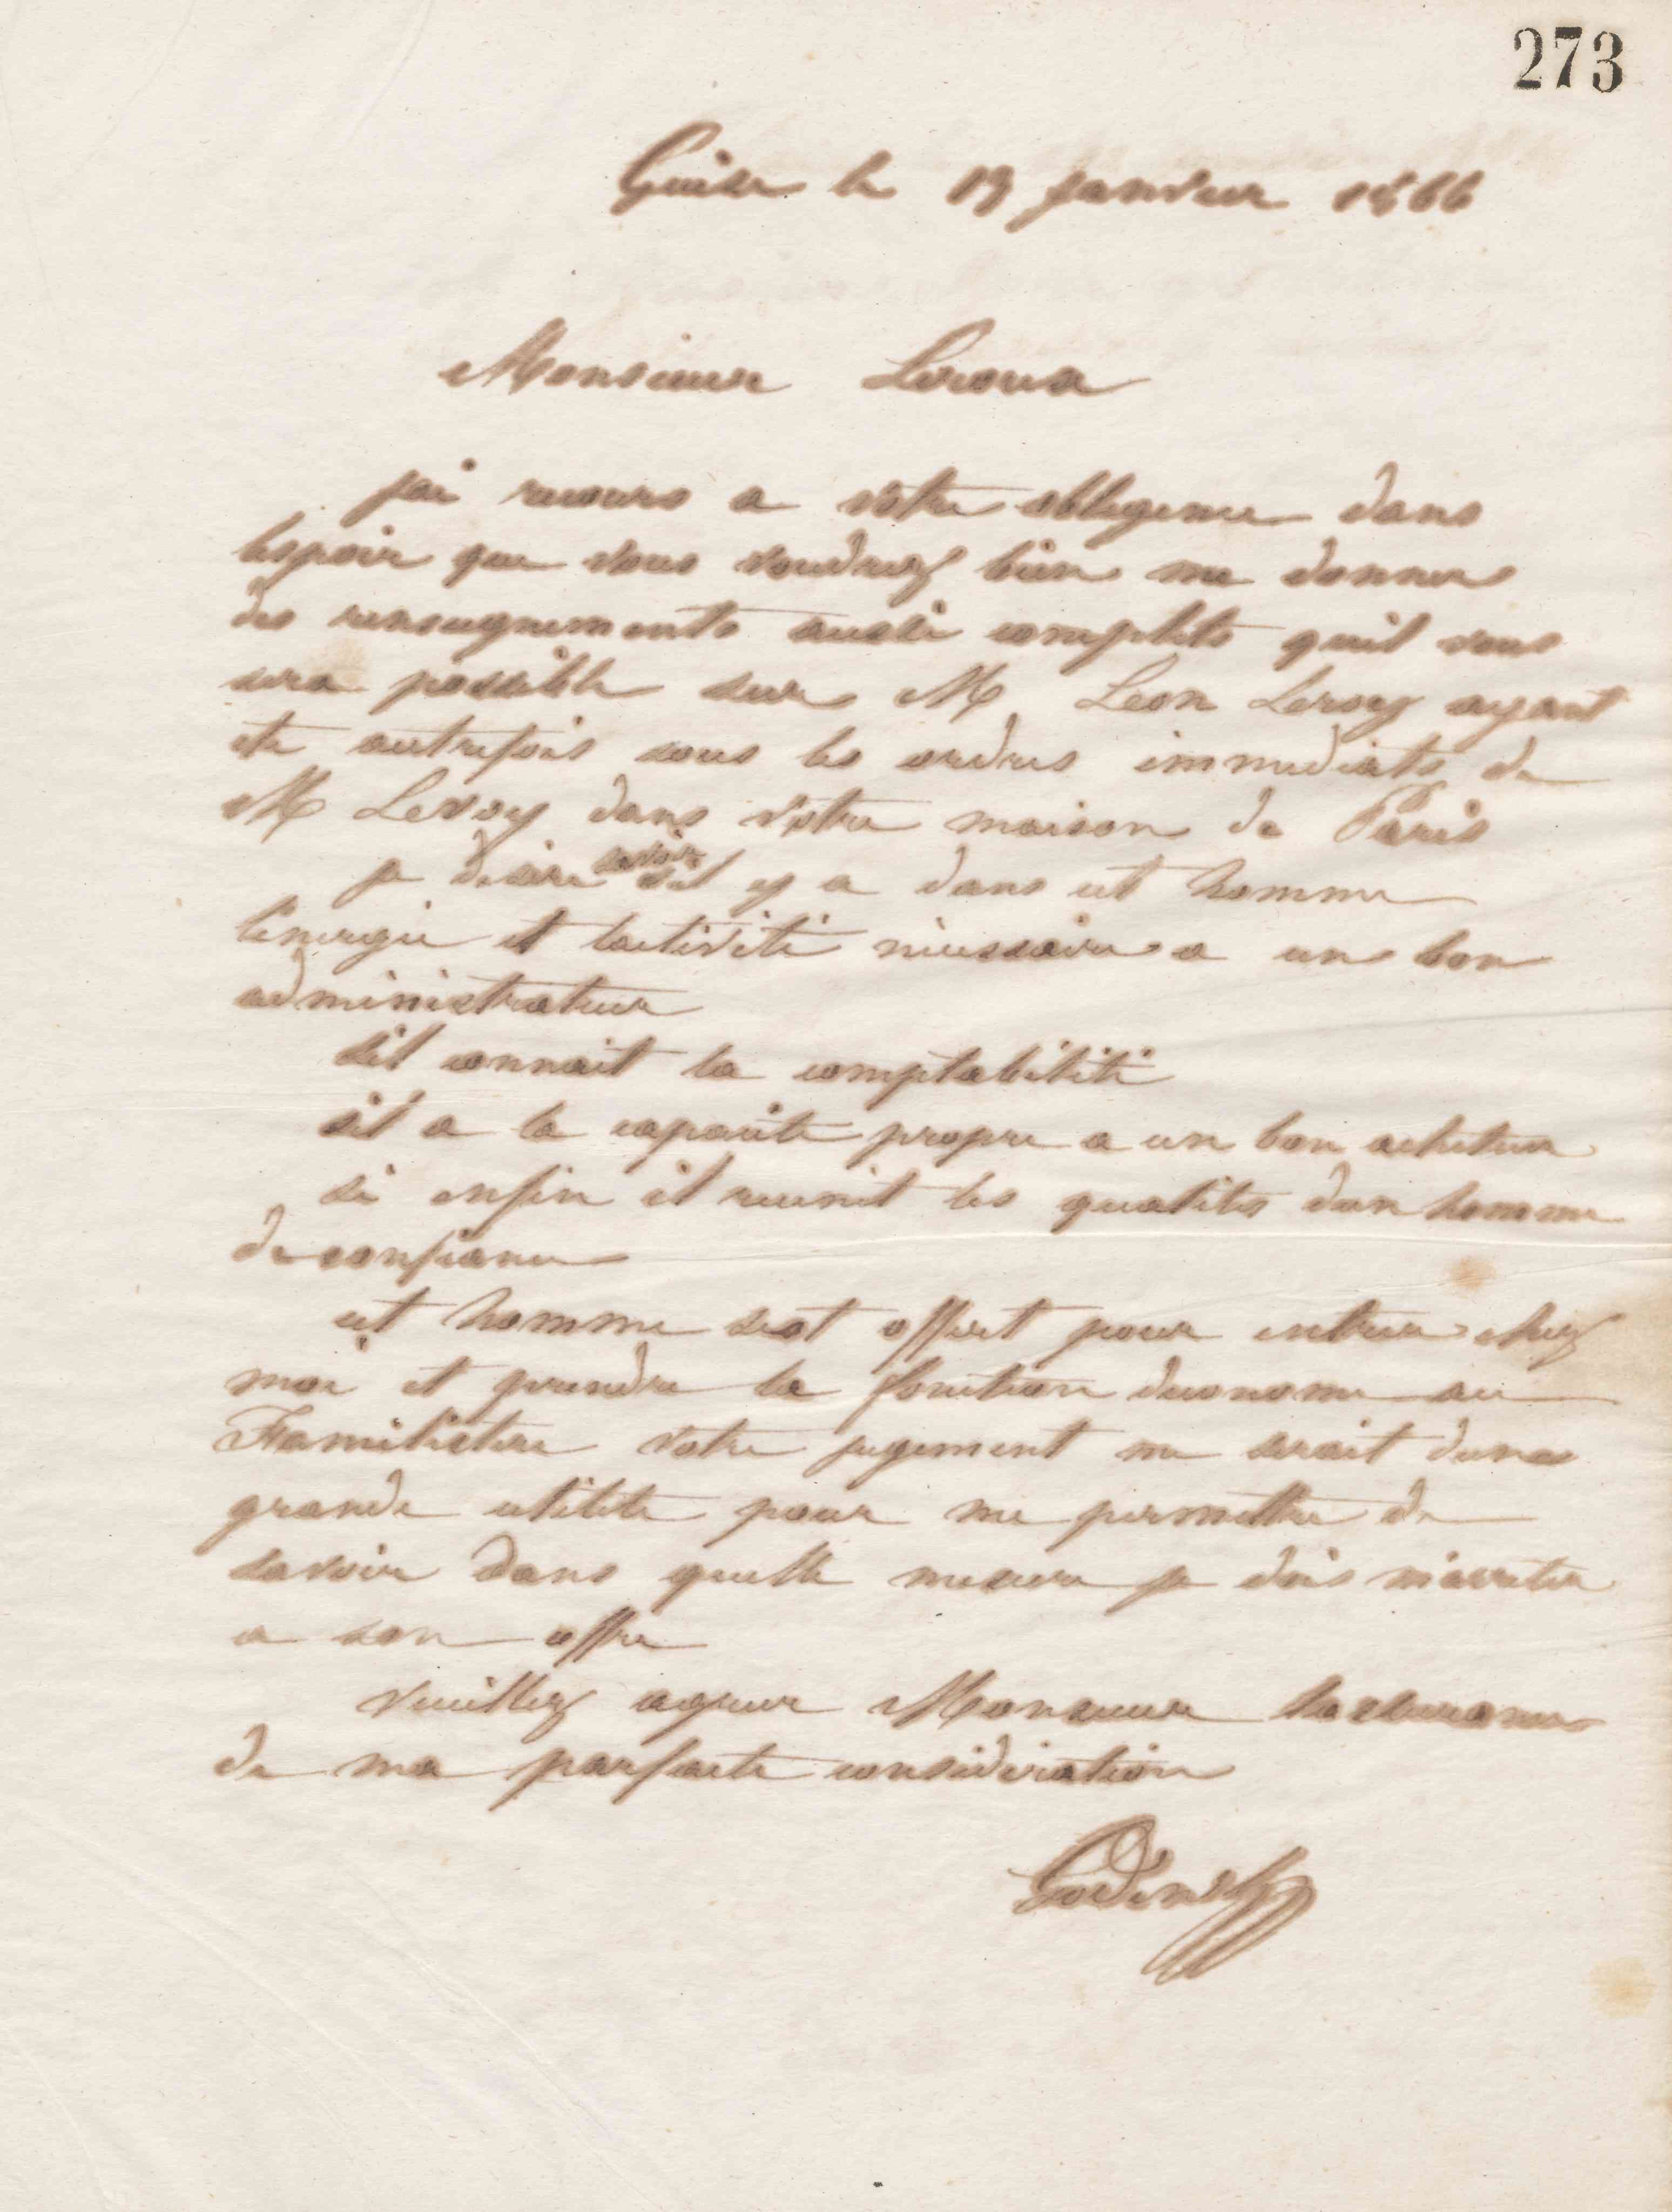 273
Guise le 19 janvier 1866
Monsieur Leroux
jai recours a votre obligence dans
lespoir que vous voudrez bien me donner
des renseignements aussi complets quil vous
sera possible sur M Leon Leroy ayant
ete autrefois sous les ordres immediats de
M Leroy dans votre maison de Paris
je desire savoir sil y a dans cet homme
lenergie et lactivité nécessaires a un bon
administrateur
sil connait la comptabilité
sil a la capacite propre a un bon acheteur
si enfin il reunit les qualites dun homme
de confiance
cet homme sest offert pour entrer chez
moi et prendre la fonction deconome au
Familistere votre jugement me serait dune
grande utilite pour me permettre de
savoir dans quelle mesure je dois marreter
a son offre
Veuillez agreer Monsieur lassurance
de ma parfaite consideration
Godin